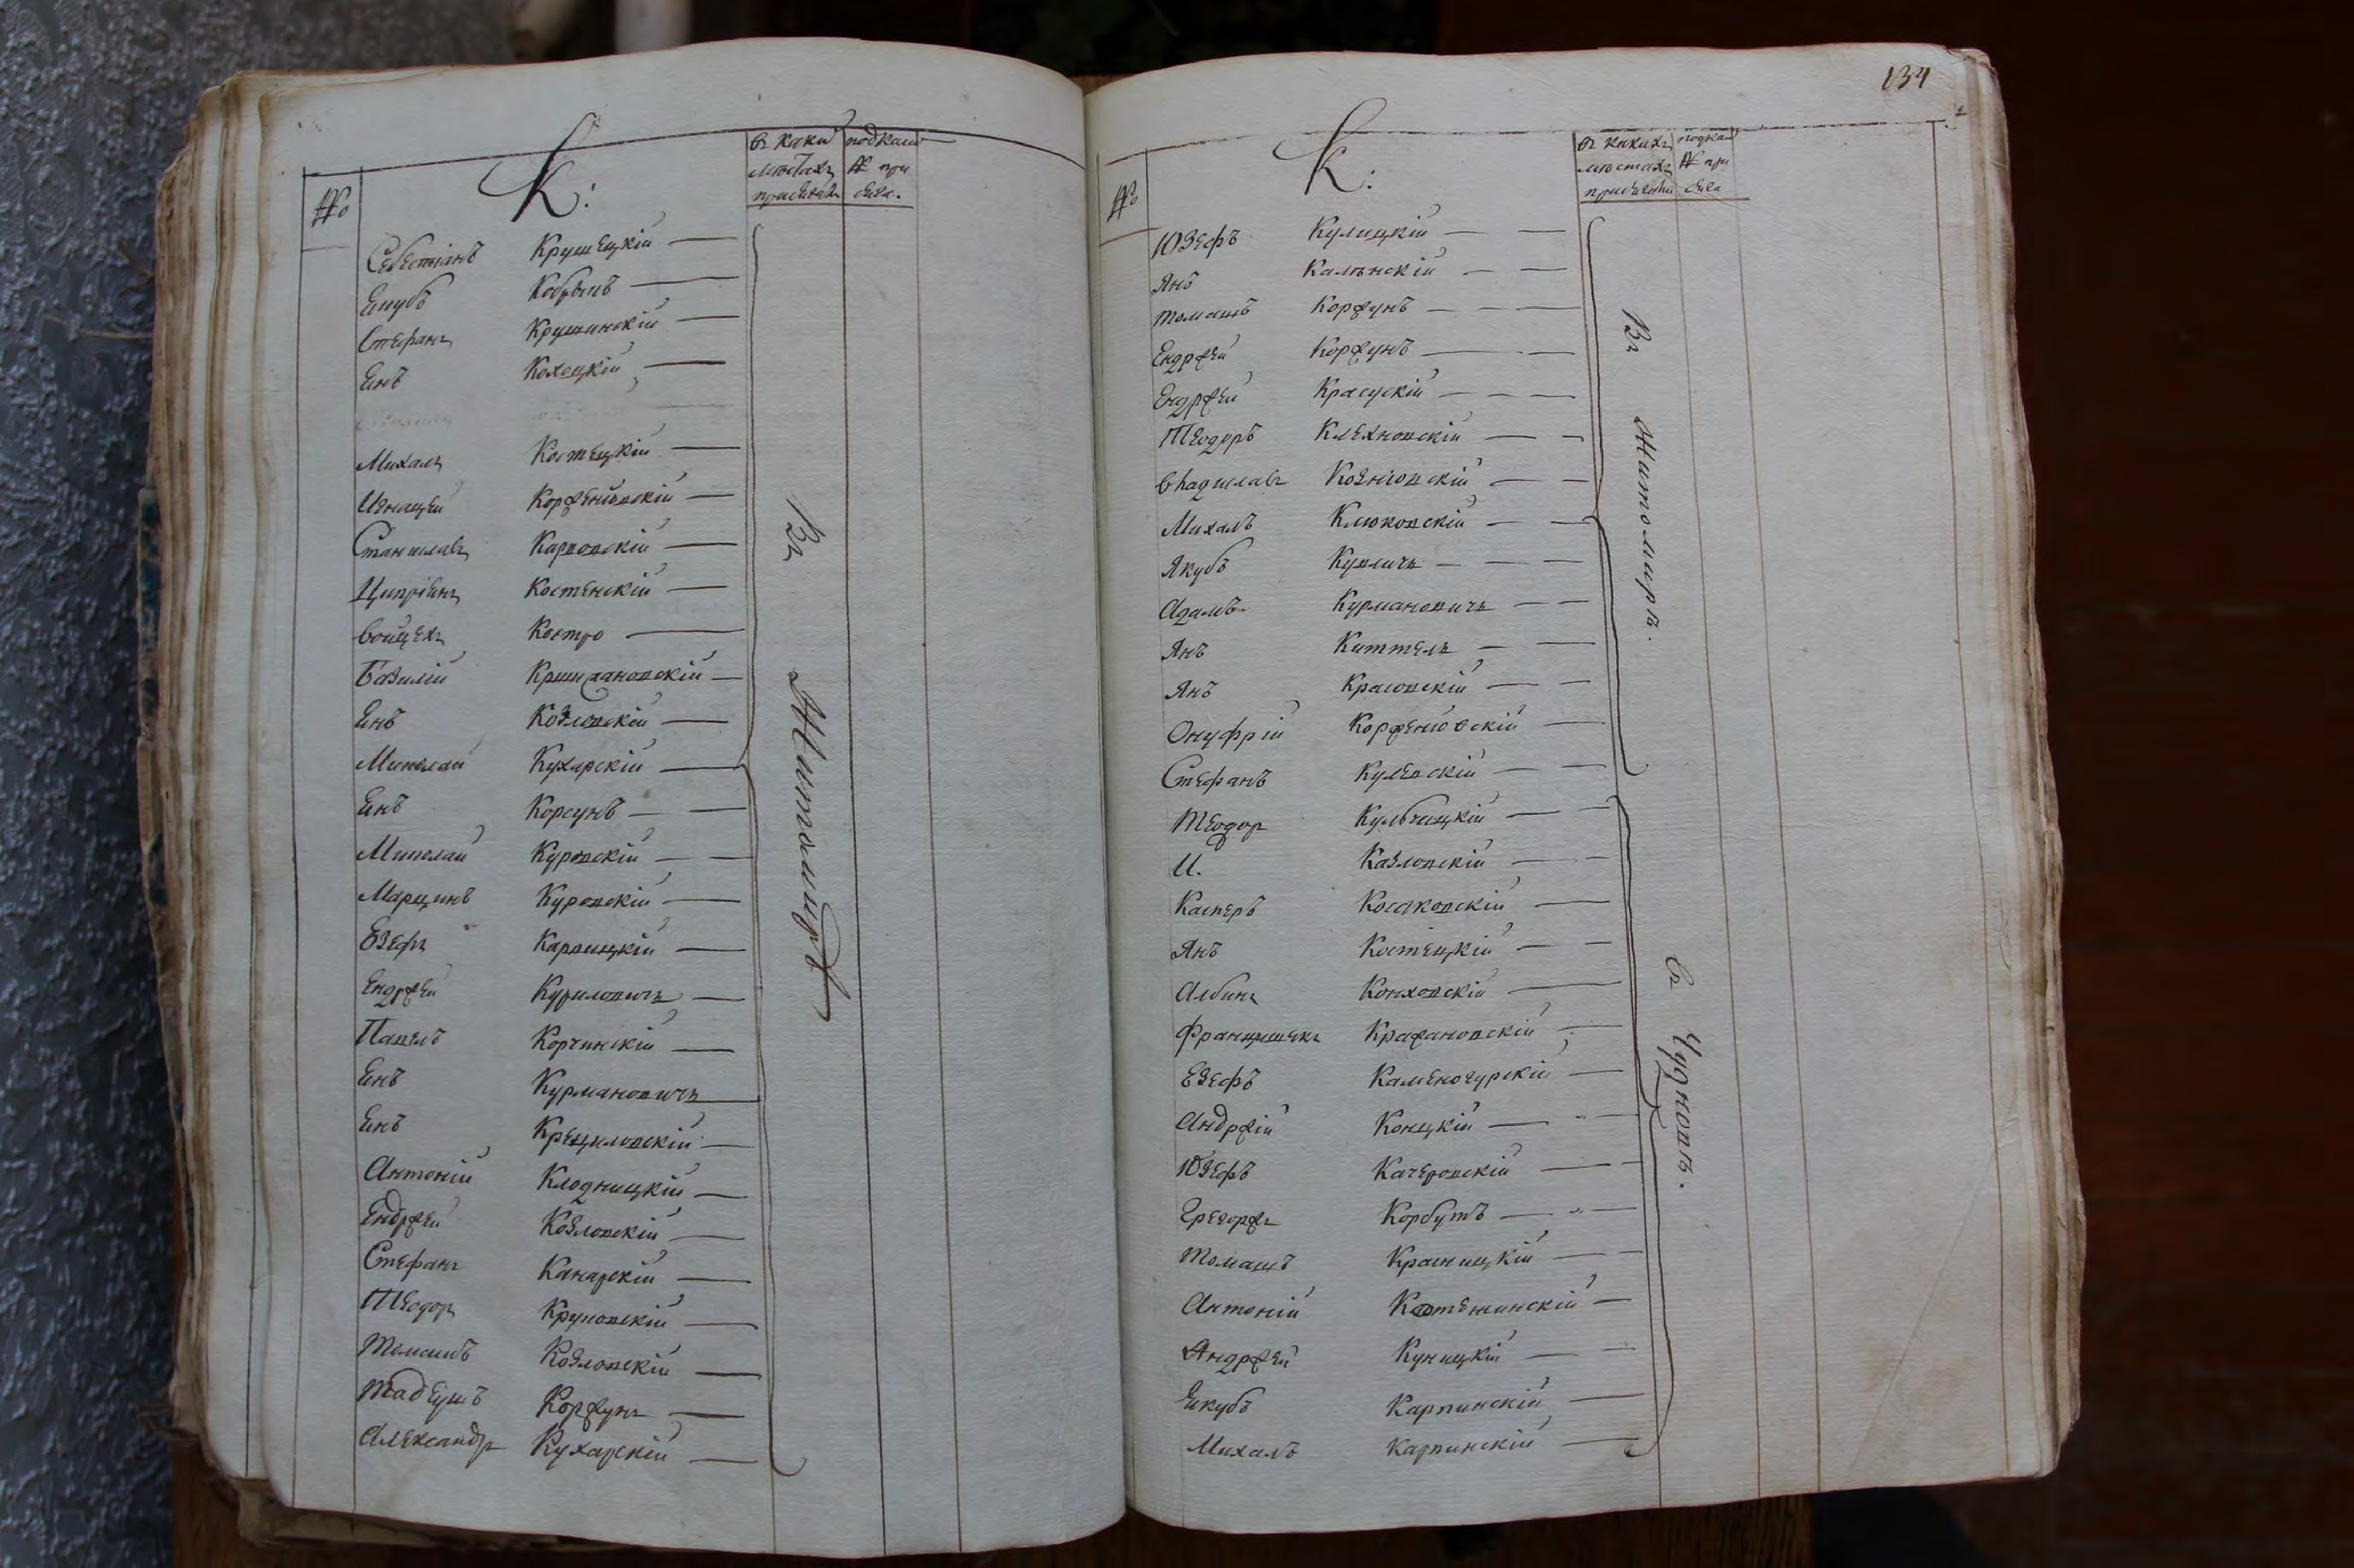 К:
№
въ каки
мѣстахъ
присягали
под каки
№ при
сяга.
Себестіанъ Крушецкій
Екубъ Кобылъ
Стефанъ Крушинскій
Енъ Колецкій
Михалъ Костецкій
Игнацей Корженіовскій
Станиславъ Карповскій
Ципріенъ Костенскій
Войцехъ Костро
Базилій
Енъ Козловскій
Миколай Кухарскій
Енъ Корсунъ
Миколай Куровскій
Марцинъ Куровскій
Езефъ Карвицкій
Ендржей Куриловичъ
Павелъ Корчинскій
Енъ Курмановичъ
Енъ Крециловскій
Антоній Клодницкій
Ендржей Козловскій
Стефанъ Канарскій
Теодоръ Круповскій
Томашъ Козловскій
Тадеушъ Коржунъ
Александръ Кухарскій
Въ Житомиръ
134
К:
№
въ какихъ
мѣстахъ
присягали
подкаки
№ при
сяга
Юзефъ Кулицкій
Янъ
Томашъ Коржунъ
Ендржей Коржунъ
Ендржей Красускій
Теодоръ Клехновскій
Владиславъ Козніовскій
Михалъ Клюковскій
Якубъ Кулличъ
Адамъ Курмановичъ
Янъ Киттель
Янъ Красовскій
Онуфрій Корженіовскій
Стефанъ Кулевскій
Теодор Кульчицкій
И. Казловскій
Касперъ Косаковскій
Янъ Костецкій
Албинъ Конховскій
Францишекъ Кражановскій
Езефъ Каменогурскій
Андржій Конецкій
Юзефъ Качеровскій
Грегоржъ Корбутъ
Томашъ Красницкій
Антоній
Андржей Куницкій
Екубъ Карпинскій
Михалъ Карпинскій
Въ Житомиръ.
Въ Чудновъ.